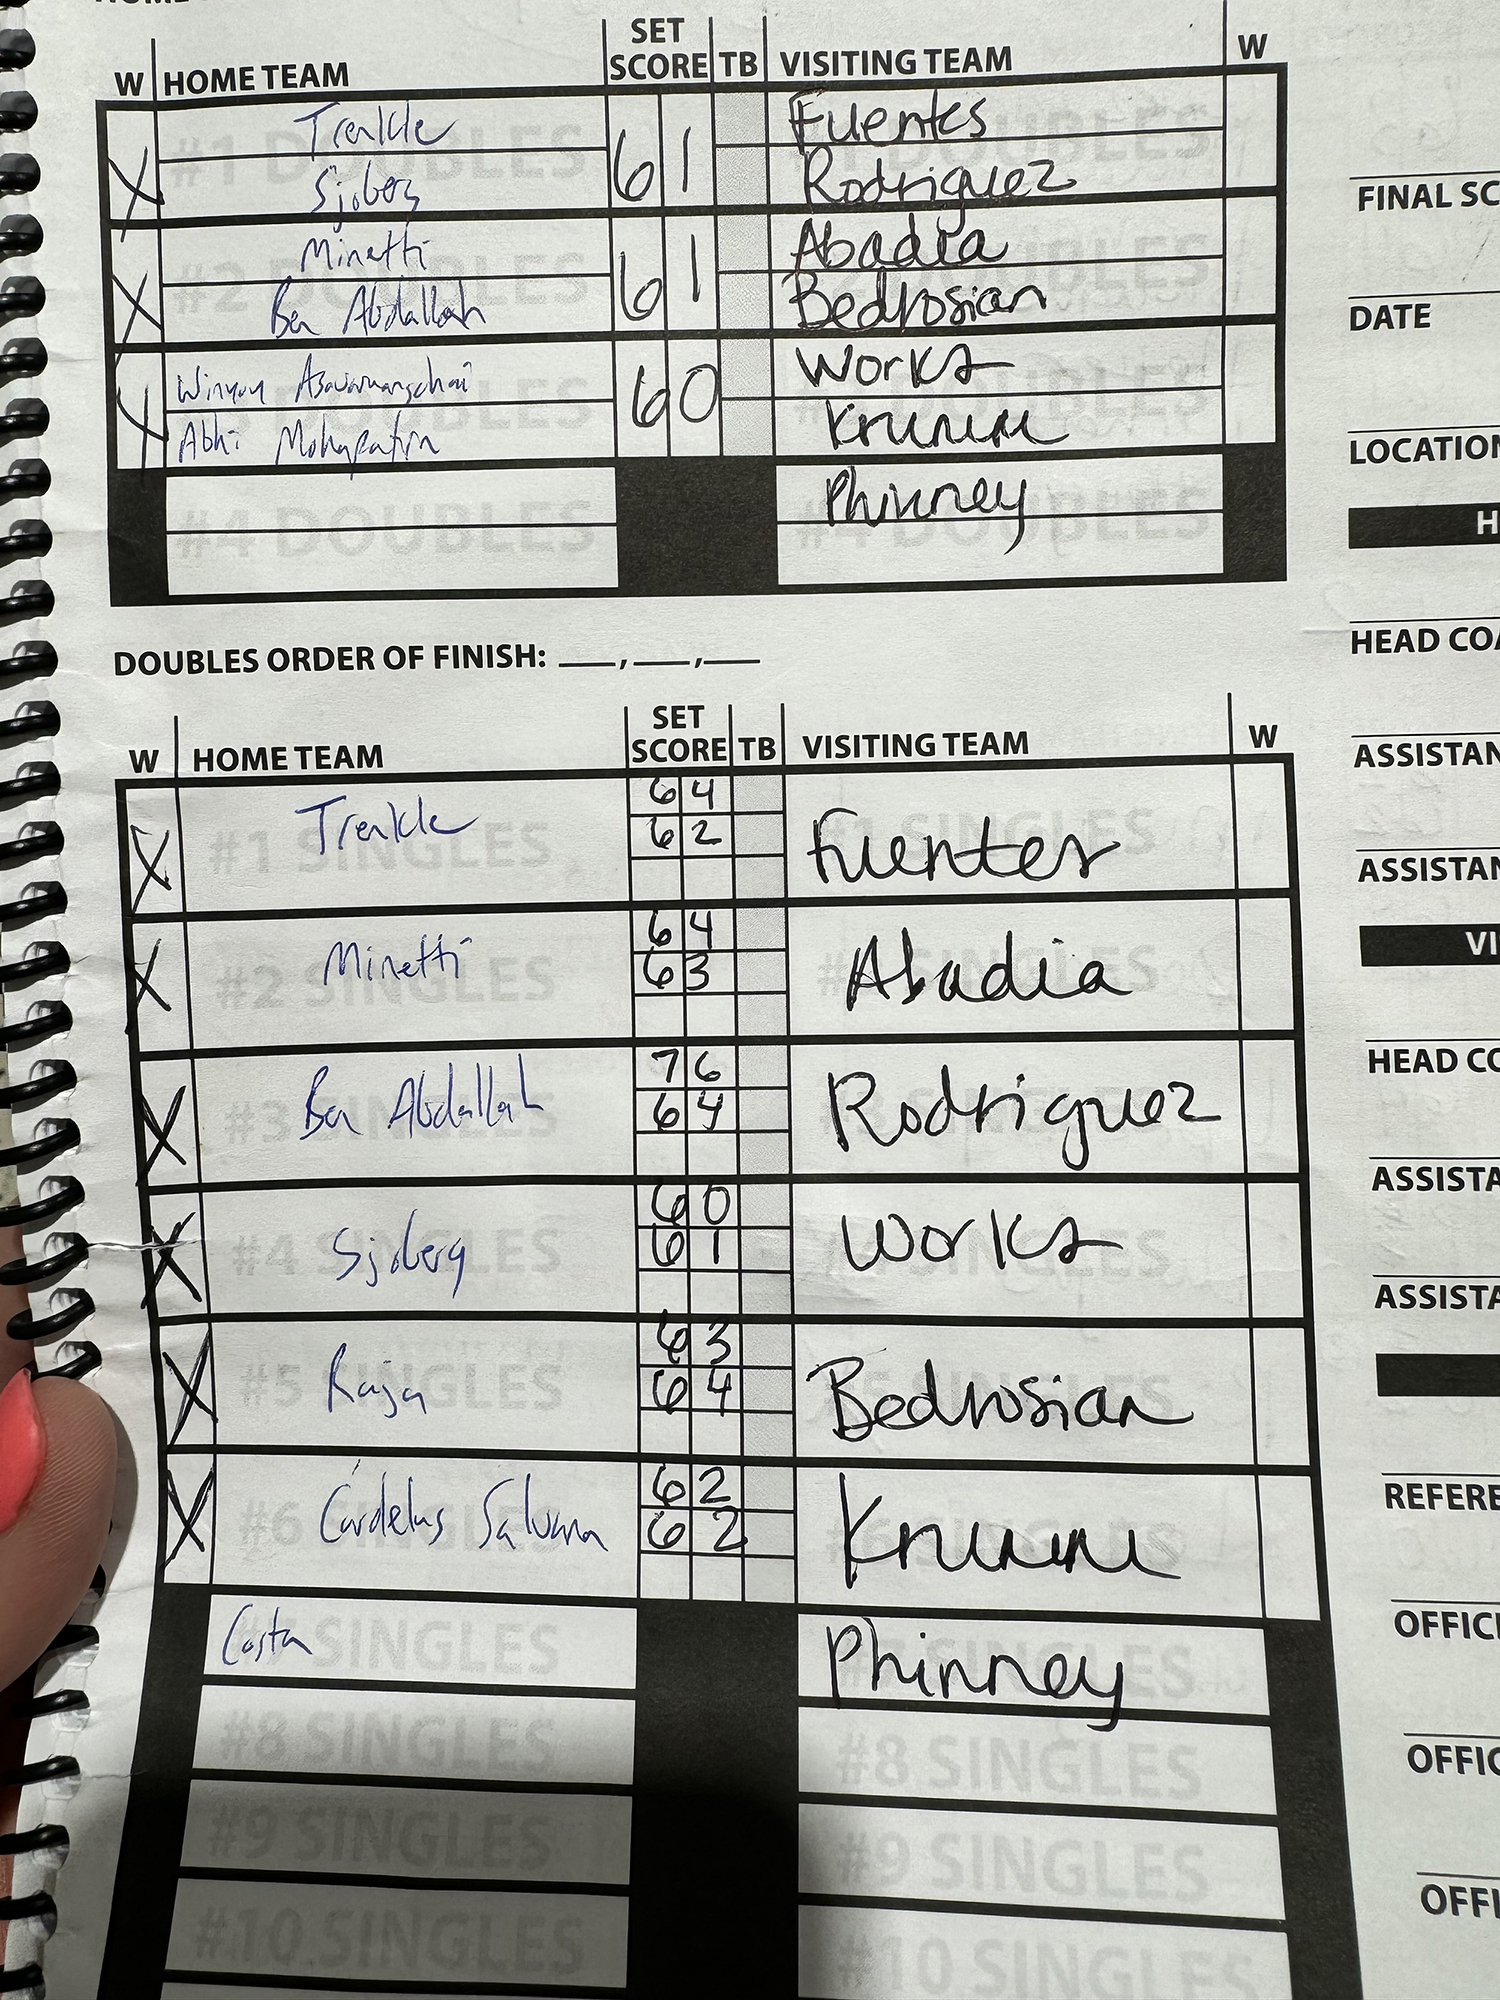 SET
W HOME TEAM SCORE TB VISITING TEAM W
#1 DOUBLES
Trenkle 6 1 Fuentes
Sjoberg Rodriguez
#2 DOUBLES
Minetti 6 1 Abadia
Ben Abdallah Bedrosian
6 0 Works
Abhi Mohapatra Krumm
#4 DOUBLES Phinney #4 DOUBLES
DOUBLES ORDER OF FINISH: ___, ___, ___
SET
W HOME TEAM SCORE TB VISITING TEAM W
#1 SINGLES
X Trenkle 6 4 Fuentes
6 2
#2 SINGLES
X Minetti 6 4 Abadia
6 3
#3 SINGLES
X Ben Abdallah 7 6 Rodriguez
6 4
#4 SINGLES
X Sjoberg 6 0 Works
6 1
#5 SINGLES
X Raja 6 3 Bedrosian
6 4
#6 SINGLES
X 6 2 Krumm
6 2
Costa SINGLES Phinney
#8 SINGLES #8 SINGLES
#9 SINGLES #9 SINGLES
#10 SINGLES #10 SINGLES
FINAL SC
DATE
LOCATION
H
HEAD COA
ASSISTAN
ASSISTAN
VI
HEAD CO
ASSISTA
ASSISTA
REFERE
OFFICI
OFFIC
OFFI